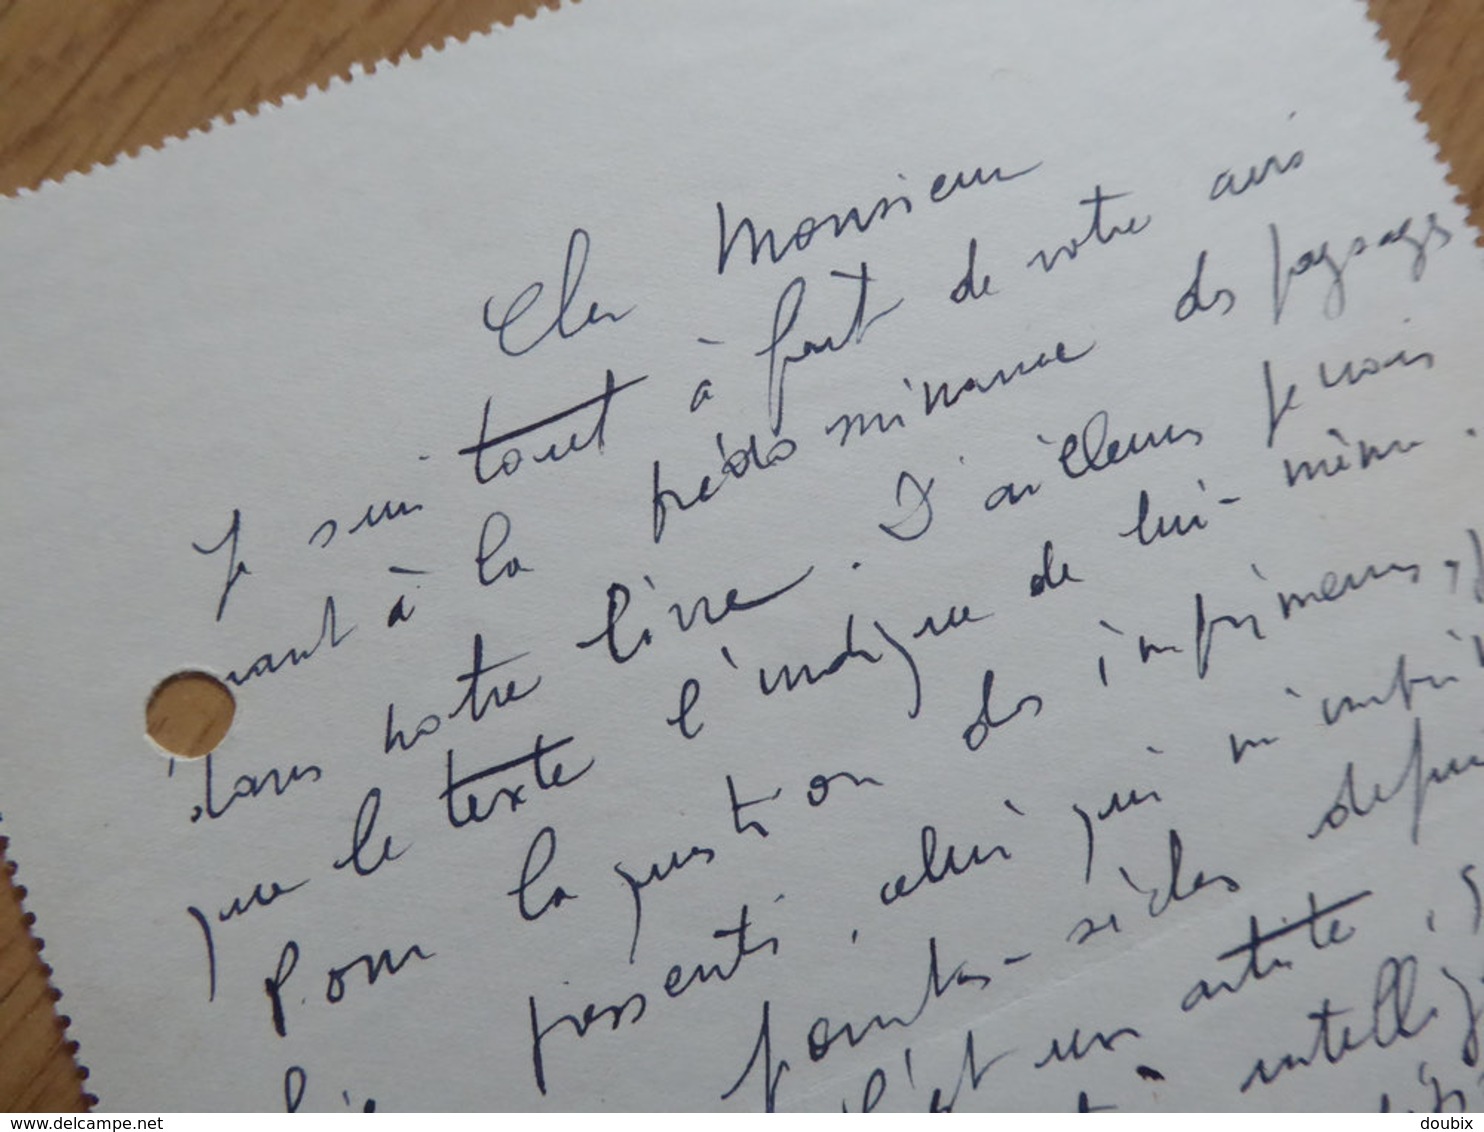 Cher Monsieur
Je suis tout à fait de votre avis
quant à la prédominance des paysages
dans notre livre. D'ailleurs je vois
que le texte l'indique de lui-même.
Pour la question des imprimeurs,
pressenti, celui qui m'imprime
pointes-sèches depuis
C'est un artiste,
intellig
www.delcampe.net
doubix